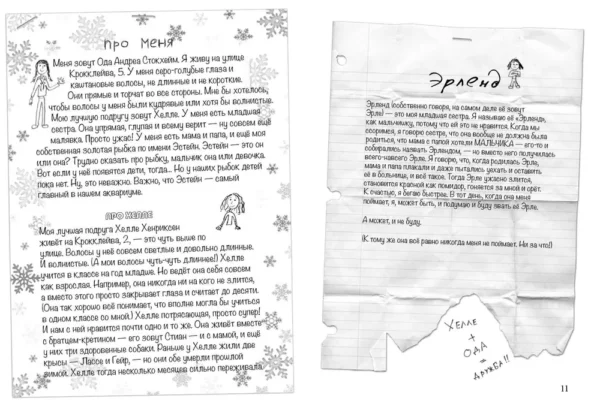 про меня
Меня зовут Ода Андреа Стокхейм. Я живу на улице
Крокклейва, 5. У меня серо-голубые глаза и
каштановые волосы, не длинные и не короткие.
Они прямые и торчат во все стороны. Мне бы хотелось,
чтобы волосы у меня были кудрявые или хотя бы волнистые.
Мою лучшую подругу зовут Хелле. У меня есть младшая
сестра. Она упрямая, глупая и всему верит — ну совсем ещё
малявка. Просто ужас! У меня есть мама и папа, и ещё моя
собственная золотая рыбка по имени Эстейн. Эстейн — это он
или она? Трудно сказать про рыбку, мальчик она или девочка.
Вот если у неё появятся дети, тогда... Но у наших рыбок детей
пока нет. Ну, это неважно. Важно, что Эстейн — самый
главный в нашем аквариуме.
ПРО ХЕЛЛЕ
Моя лучшая подруга Хелле Хенриксен
живёт на Крокклейва, 2, — это чуть выше по
улице. Волосы у неё совсем светлые и довольно длинные.
И волнистые. (А мои волосы чуть-чуть длиннее!) Хелле
учится в классе на год младше. Но ведёт она себя совсем
как взрослая. Например, она никогда ни на кого не злится,
а вместо этого просто закрывает глаза и считает до десяти.
(Она так хорошо всё понимает, что вполне могла бы учиться
в одном классе со мной.) Хелле потрясающая, просто супер!
И нам с ней нравится почти одно и то же. Она живёт вместе
с братцем-кретином — его зовут Стиан — и с мамой, и ещё
у них три здоровенные собаки. Раньше у Хелле жили две
крысы — Лассе и Гейр, — но они обе умерли прошлой
зимой. Хелле тогда несколько месяцев сильно переживала.
Эрленд
Эрленд (собственно говоря, на самом деле её зовут
Эрле) — это моя младшая сестра. Я называю её «Эрленд»,
как мальчишку, потому что ей это не нравится. Когда мы
ссоримся, я говорю сестре, что она вообще не должна была
родиться, что мама с папой хотели МАЛЬЧИКА — его-то и
собирались назвать Эрлендом, — но вместо него получилась
всего-навсего Эрле. Я говорю, что, когда родилась Эрле,
мама и папа плакали и даже пытались уехать и оставить
её в больнице, и всё такое. Тогда Эрле ужасно злится,
становится красной как помидор, гоняется за мной и орёт.
К счастью, я бегаю быстрее. В тот день, когда она меня
поймает, я, может быть, и подумаю и буду звать её Эрле.
А может, и не буду.
(К тому же она всё равно никогда меня не поймает. Ни за что!)
ХЕЛЛЕ
+
ОДА
=
ДРУЖБА!!
11